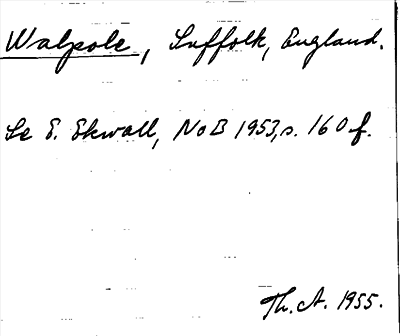 Walpole, Suffolk, England.
Se E. Ekwall, NoB 1953, s. 160 f.
Th. A. 1955.